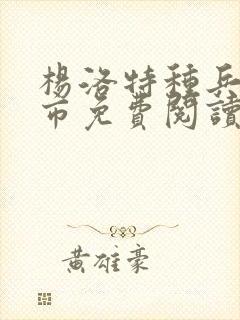 楊洛特種兵
市免費閱讀
黃雄豪